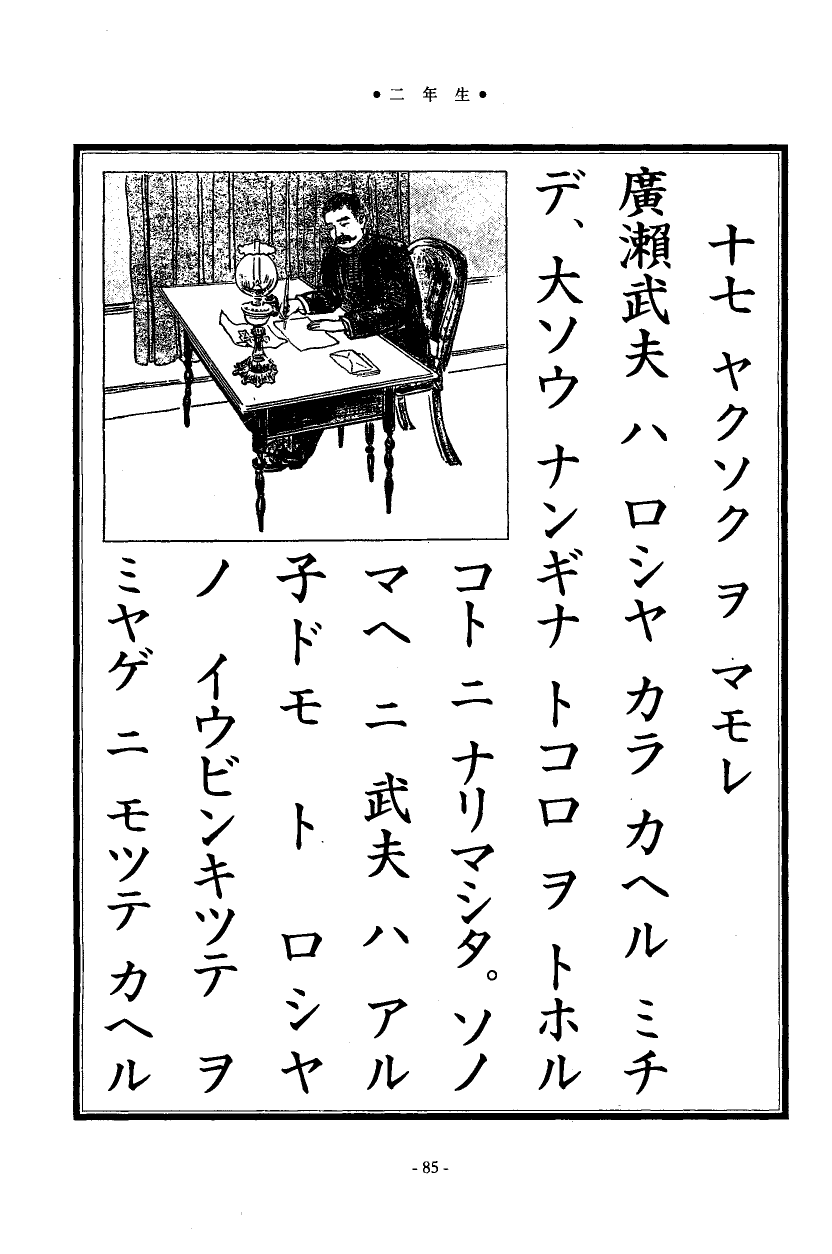 ●二年生●
十七 ヤクソク ヲ マモレ
廣瀨武夫 ハ ロシヤ カラ カヘル ミチ
デ、大ソウ ナンギナ トコロ ヲ トホル
コト ニ ナリマシタ。ソノ
マヘ ニ 武夫 ハ アル
子ドモ ト ロシヤ
ノ イウビンキツテ ヲ
ミヤゲ ニ モツテ カヘル
- 85 -